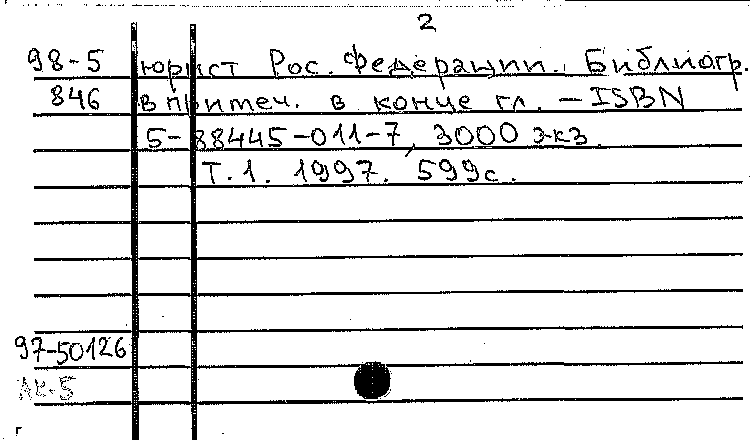 2
98-5 юрист Рос. Федерации. Библиогр.
846 в примеч. в конце гл. – ISBN
5-88445-011-7, 3000 экз.
Т.1. 1997. 599с.
97-50126
АК-5